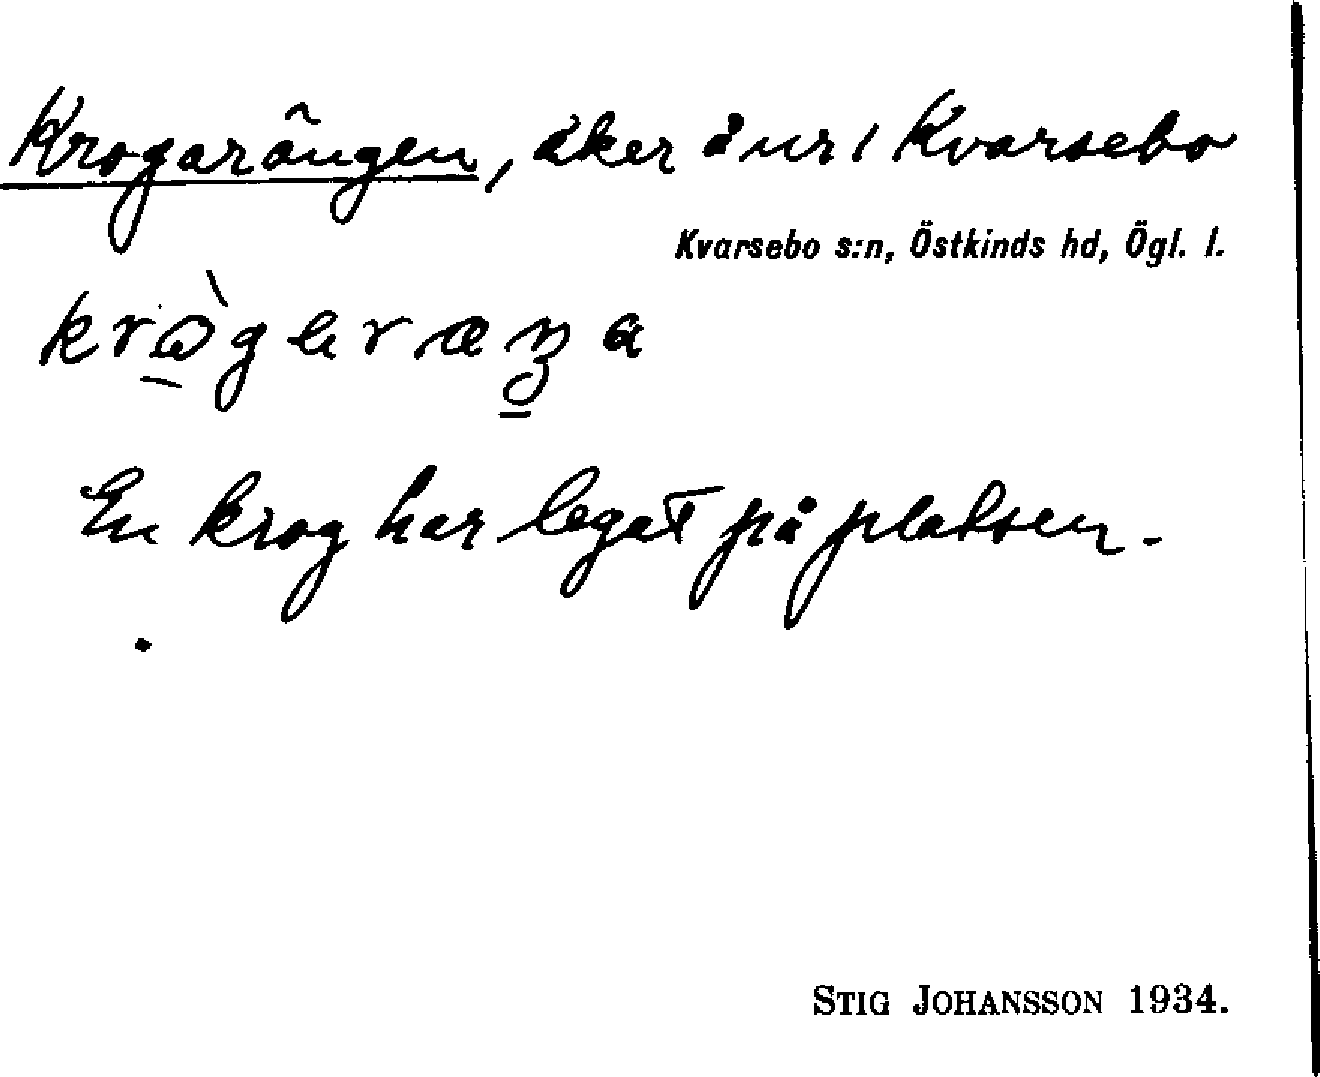 Krogarängen, åker å nr 1 Kvarsebo
Kvarsebo s:n, Östkinds hd, Ögl. l.
En krog har legat på platsen.
STIG JOHANSSON 1934.